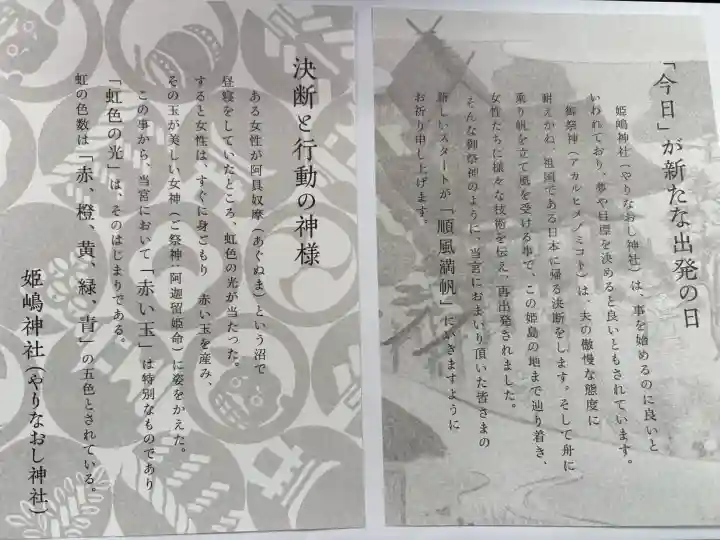 「今日」が新たな出発の日
姫嶋神社（やりなおし神社）は、事を始めるのに良いと
いわれており、夢や目標を決めると良いともされています。
御祭神（アカルヒメノミコト）は、夫の傲慢な態度に
耐えかね、祖国である日本に帰る決断をします。そして舟に
乗り帆を立て風を受ける事で、この姫島の地まで辿り着き、
女性たちに様々な技術を伝え「再出発されました。
そんな御祭神のように、当宮におまいり頂いた皆さまの
新しいスタートが「順風満帆」にいきますように
お祈り申し上げます。
決断と行動の神様
ある女性が阿具奴摩（あぐぬま）という沼で
昼寝をしていたところ、虹色の光が当たった。
すると女性は、すぐに身ごもり 赤い玉を産み、
その玉が美しい女神（ご祭神：阿迦留姫命）に姿をかえた。
この事から、当宮において「赤い玉」は特別なものであり
「虹色の光」は、そのはじまりである。
虹の色数は「赤、橙、黄、緑、青」の五色とされている。
姫嶋神社（やりなおし神社）